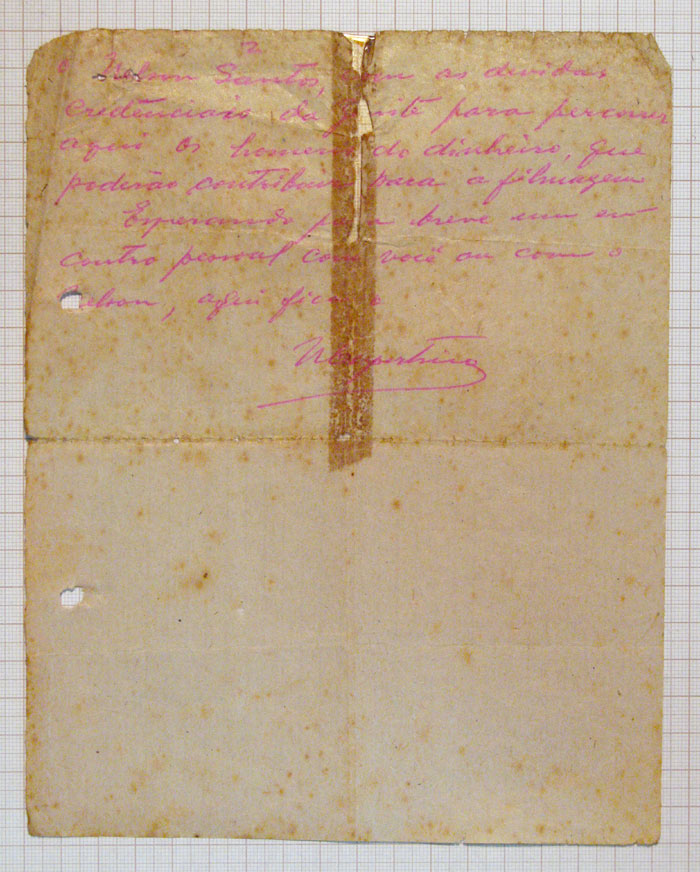 o Nelson Santos, com as devidas
credênciais da gente para percorrer
aqui os homens do dinheiro, que
poderão contribuir para a filmagem
Esperando para breve um en
contro pessoal com você ou com o
Nelson, aqui fica o